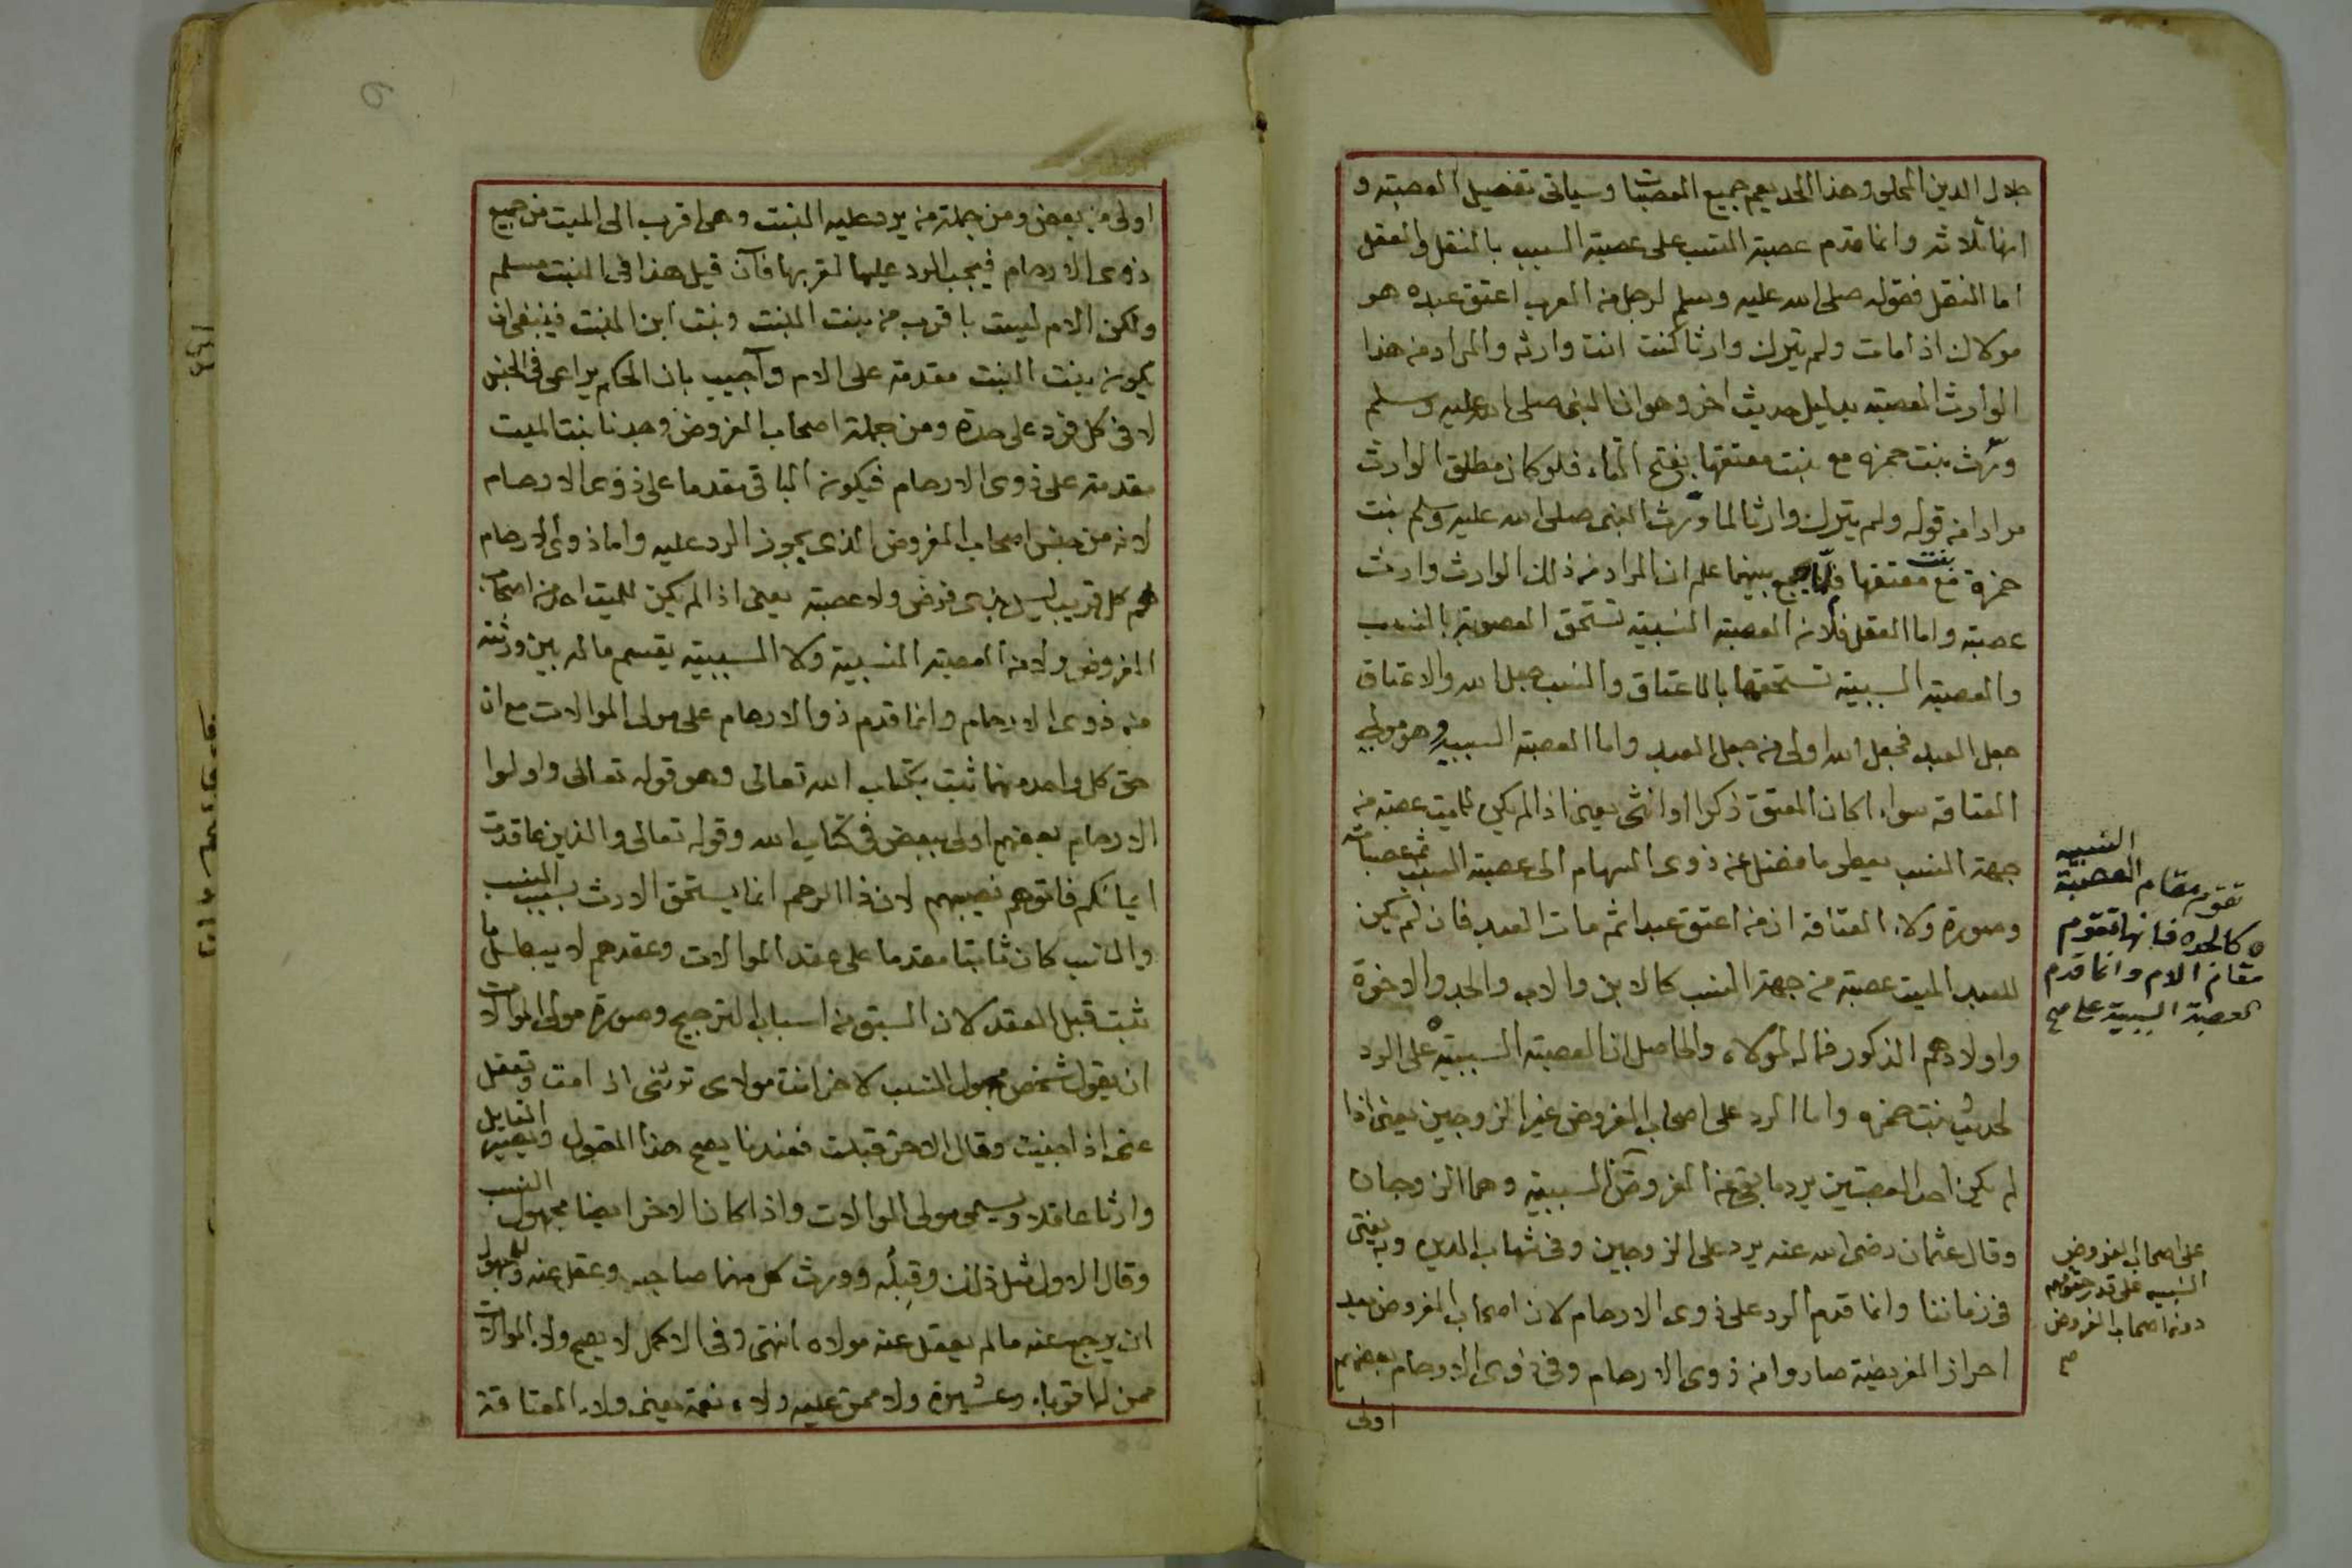 جلال الدين المحلى وهذا الحد يعم جميع العصبات وسياتى تفصيل العصبة و
انها ثلاثة وانما قدم عصبة النسب على عصبة السبب بالنقل والعقل
اما النقل فقوله صلى الله عليه وسلم لرجل من العرب اعتق عبده هو
مولاك اذا مات ولم يترك وارثا كنت انت وارثه والمراد من هذا
الوارث العصبة بدليل حديث اخر وهو ان النبى صلى الله عليه وسلم
ورّث بنت حمزه مع بنت معتقها بفتح التاء فلو كان مطلق الوارث
مرادا من قوله ولم يترك وارثا لما ورّث النبى صلى الله عليه وسلم بنت
حمزة مع بنت معتقها فلما جمع بينهما علم ان المراد من ذلك الوارث وارث
عصبة واما العقل فلان العصبة النسبية تستحق العصوبة بالنسب
والعصبة السببية تستحقها بالاعتاق والنسب جعل الله والاعتاق
جعل العبد فجعل الله اولى من جعل العبد واما العصبة السببية وهو مولى
العتاقة سواء كان المعتق ذكرا او انثى يعنى اذا لم يكن للميت عصبة من
جهة النسب يعطى ما فضل عن ذوى السهام الى عصبة السبب ثم عصباته
وصورة ولاء العتاقة ان من اعتق عبدا ثم مات العبد فان لم يكن
للعبد الميت عصبة من جهة النسب كالابن والاب والجد والاخوة
واولادهم الذكور فماله لمولاه والحاصل ان العصبة السببية على الرد
لحديث بنت حمزه واما الرد على اصحاب الفروض غير الزوجين يعنى اذا
لم يكن احد العصبتين يرد ما بقى من الفروض السببية وهما الزوجان
وقال عثمان رضى الله عنه يرد على الزوجين وفى شهاب الدين وبه يفتى
فى زماننا وانما قدم الرد على ذوى الارحام لان اصحاب الفروض بعد
احراز الفريضة صاروا من ذوى الارحام وفى ذوى الارحام بعضهم
اولى
النسبيه
تقوم مقام العصبة
كالجده فانها تقوم
مقام الام وانما قدم
العصبة السببية على صح
على اصحاب الفروض
النسبيه على قدر حقوقهم
دون اصحاب الفروض
صح
اولى من بعض ومن جملة من يرد عليه البنت وهى اقرب الى الميت من جميع
ذوى الارحام فيجب الرد عليها لقربها فان قيل هذا فى البنت مسلم
ولكن الام ليست باقرب من بنت البنت وبنت ابن البنت فينبغى ان
يكون بنت البنت مقدمة على الام واجيب بان الحكم يراعى فى الجنس
لا فى كل فرد على حدة ومن جملة اصحاب الفروض وجدنا بنت الميت
مقدمة على ذوى الارحام فيكون الباقى مقدما على ذوى الارحام
لانه من جنس اصحاب الفروض الذى يجوز الرد عليه واما ذوى الارحام
هم كل قريب ليس بذى فرض ولا عصبة يعنى اذا لم يكن للميت احد من اصحاب
الفروض ولا من العصبة النسبية ولا السببية يقسم ماله بين ورثته
من ذوى الارحام وانما قدم ذوا الارحام على مولى الموالات مع ان
حق كل واحد منهما ثبت بكتاب الله تعالى وهو قوله تعالى واولوا
الارحام بعضهم اولى ببعض فى كتاب الله وقوله تعالى والذين عاقدت
ايمانكم فاتوهم نصيبهم لان ذا الرحم انما يستحق الارث بسبب النسب
والنسب كان ثابتا مقدما على عقد الموالات وعقدهم لا يبطل ما
ثبت قبل العقد لان السبق من اسباب الترجيح وصورة مولى الموالات
ان يقول شخص مجهول النسب لاخر انت مولاى ترثنى اذا مت وتعقل
عنى اذا جنيت وقال الاخر قبلت فعندنا يصح هذا القول ويصير القابل
وارثا عاقلا ويسمى مولى الموالات واذا كان الاخر ايضا مجهول النسب
وقال الاول مثل ذلك وقبله وورث كل منهما صاحبه وعقل عنه وللمجهول
ان يرجع عنه ما لم يعقل عنه مولاه انتهى وفى الاكمل لا يصح ولاء الموالات
ممن لها قرباء وعشيرة ولا ممن عليه ولاء نعمة يعنى ولاء العتاقة